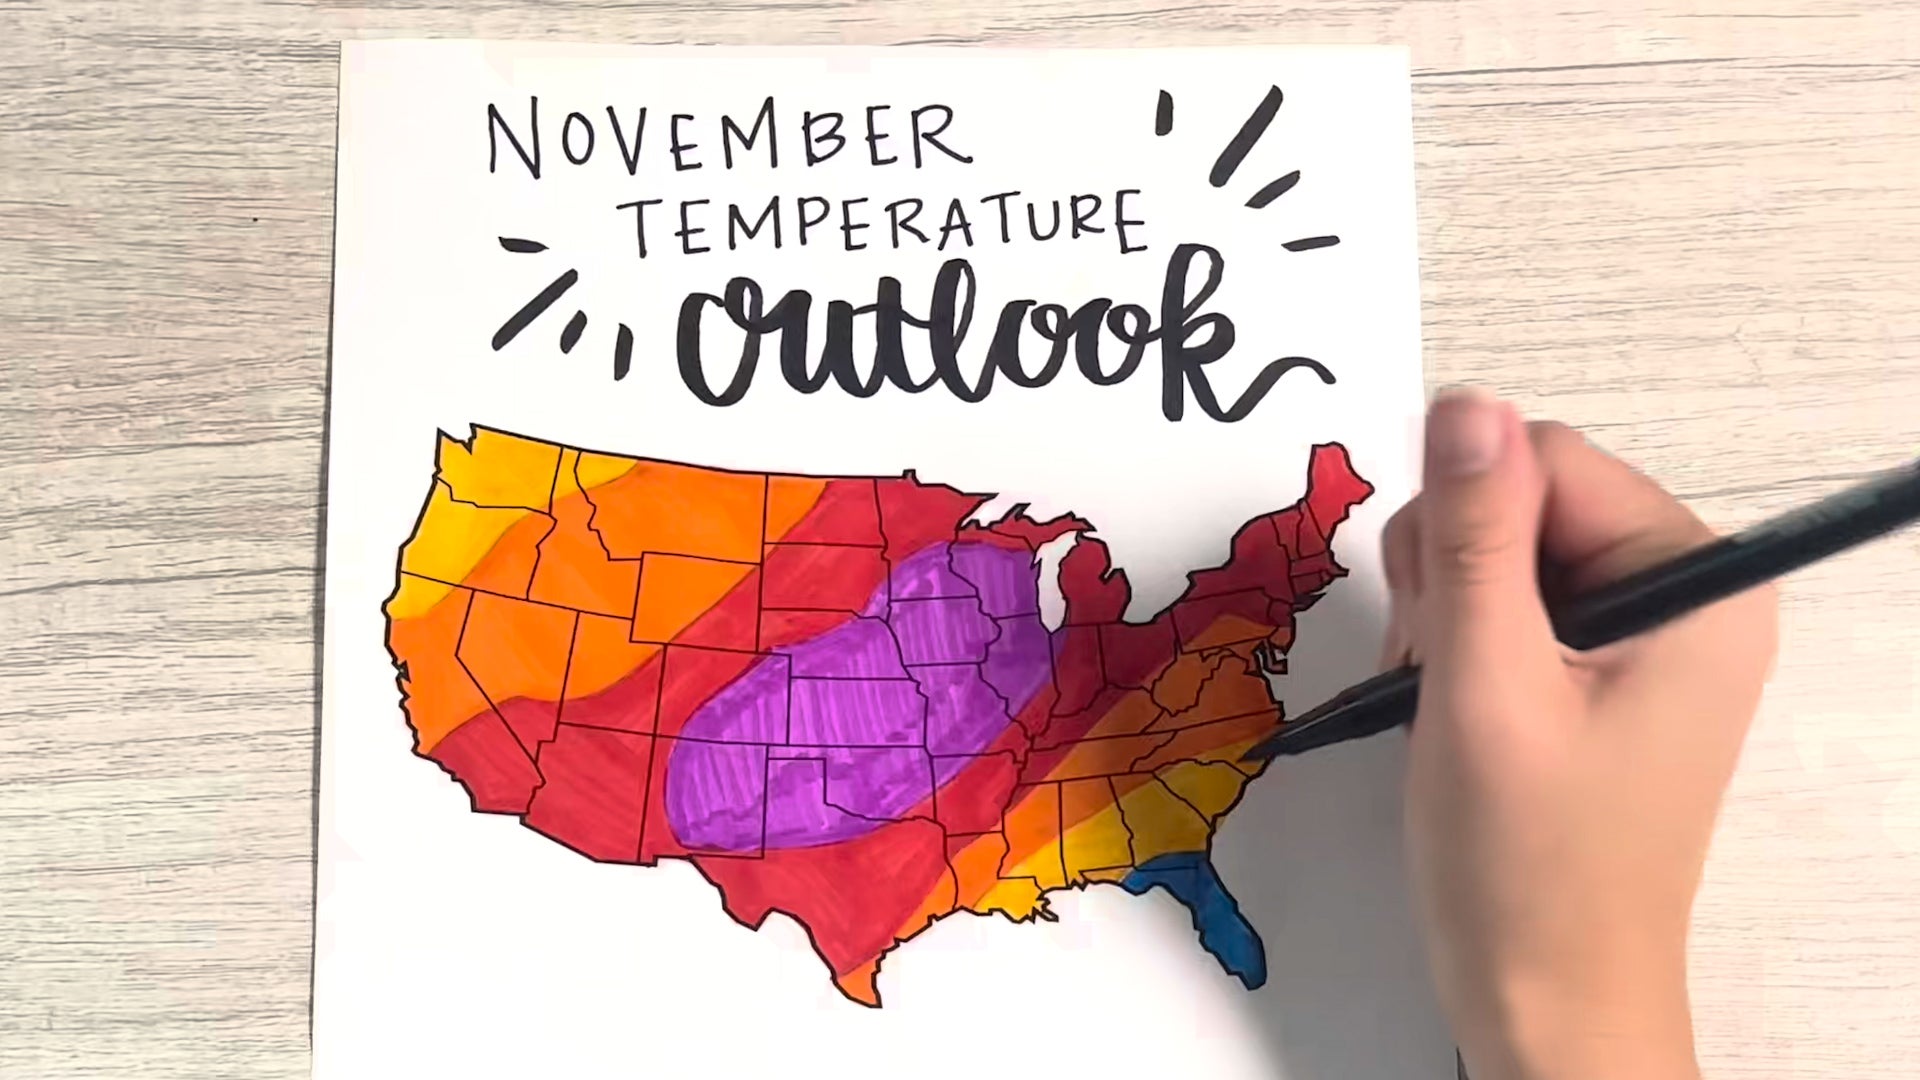 NOVEMBER
TEMPERATURE
outlook